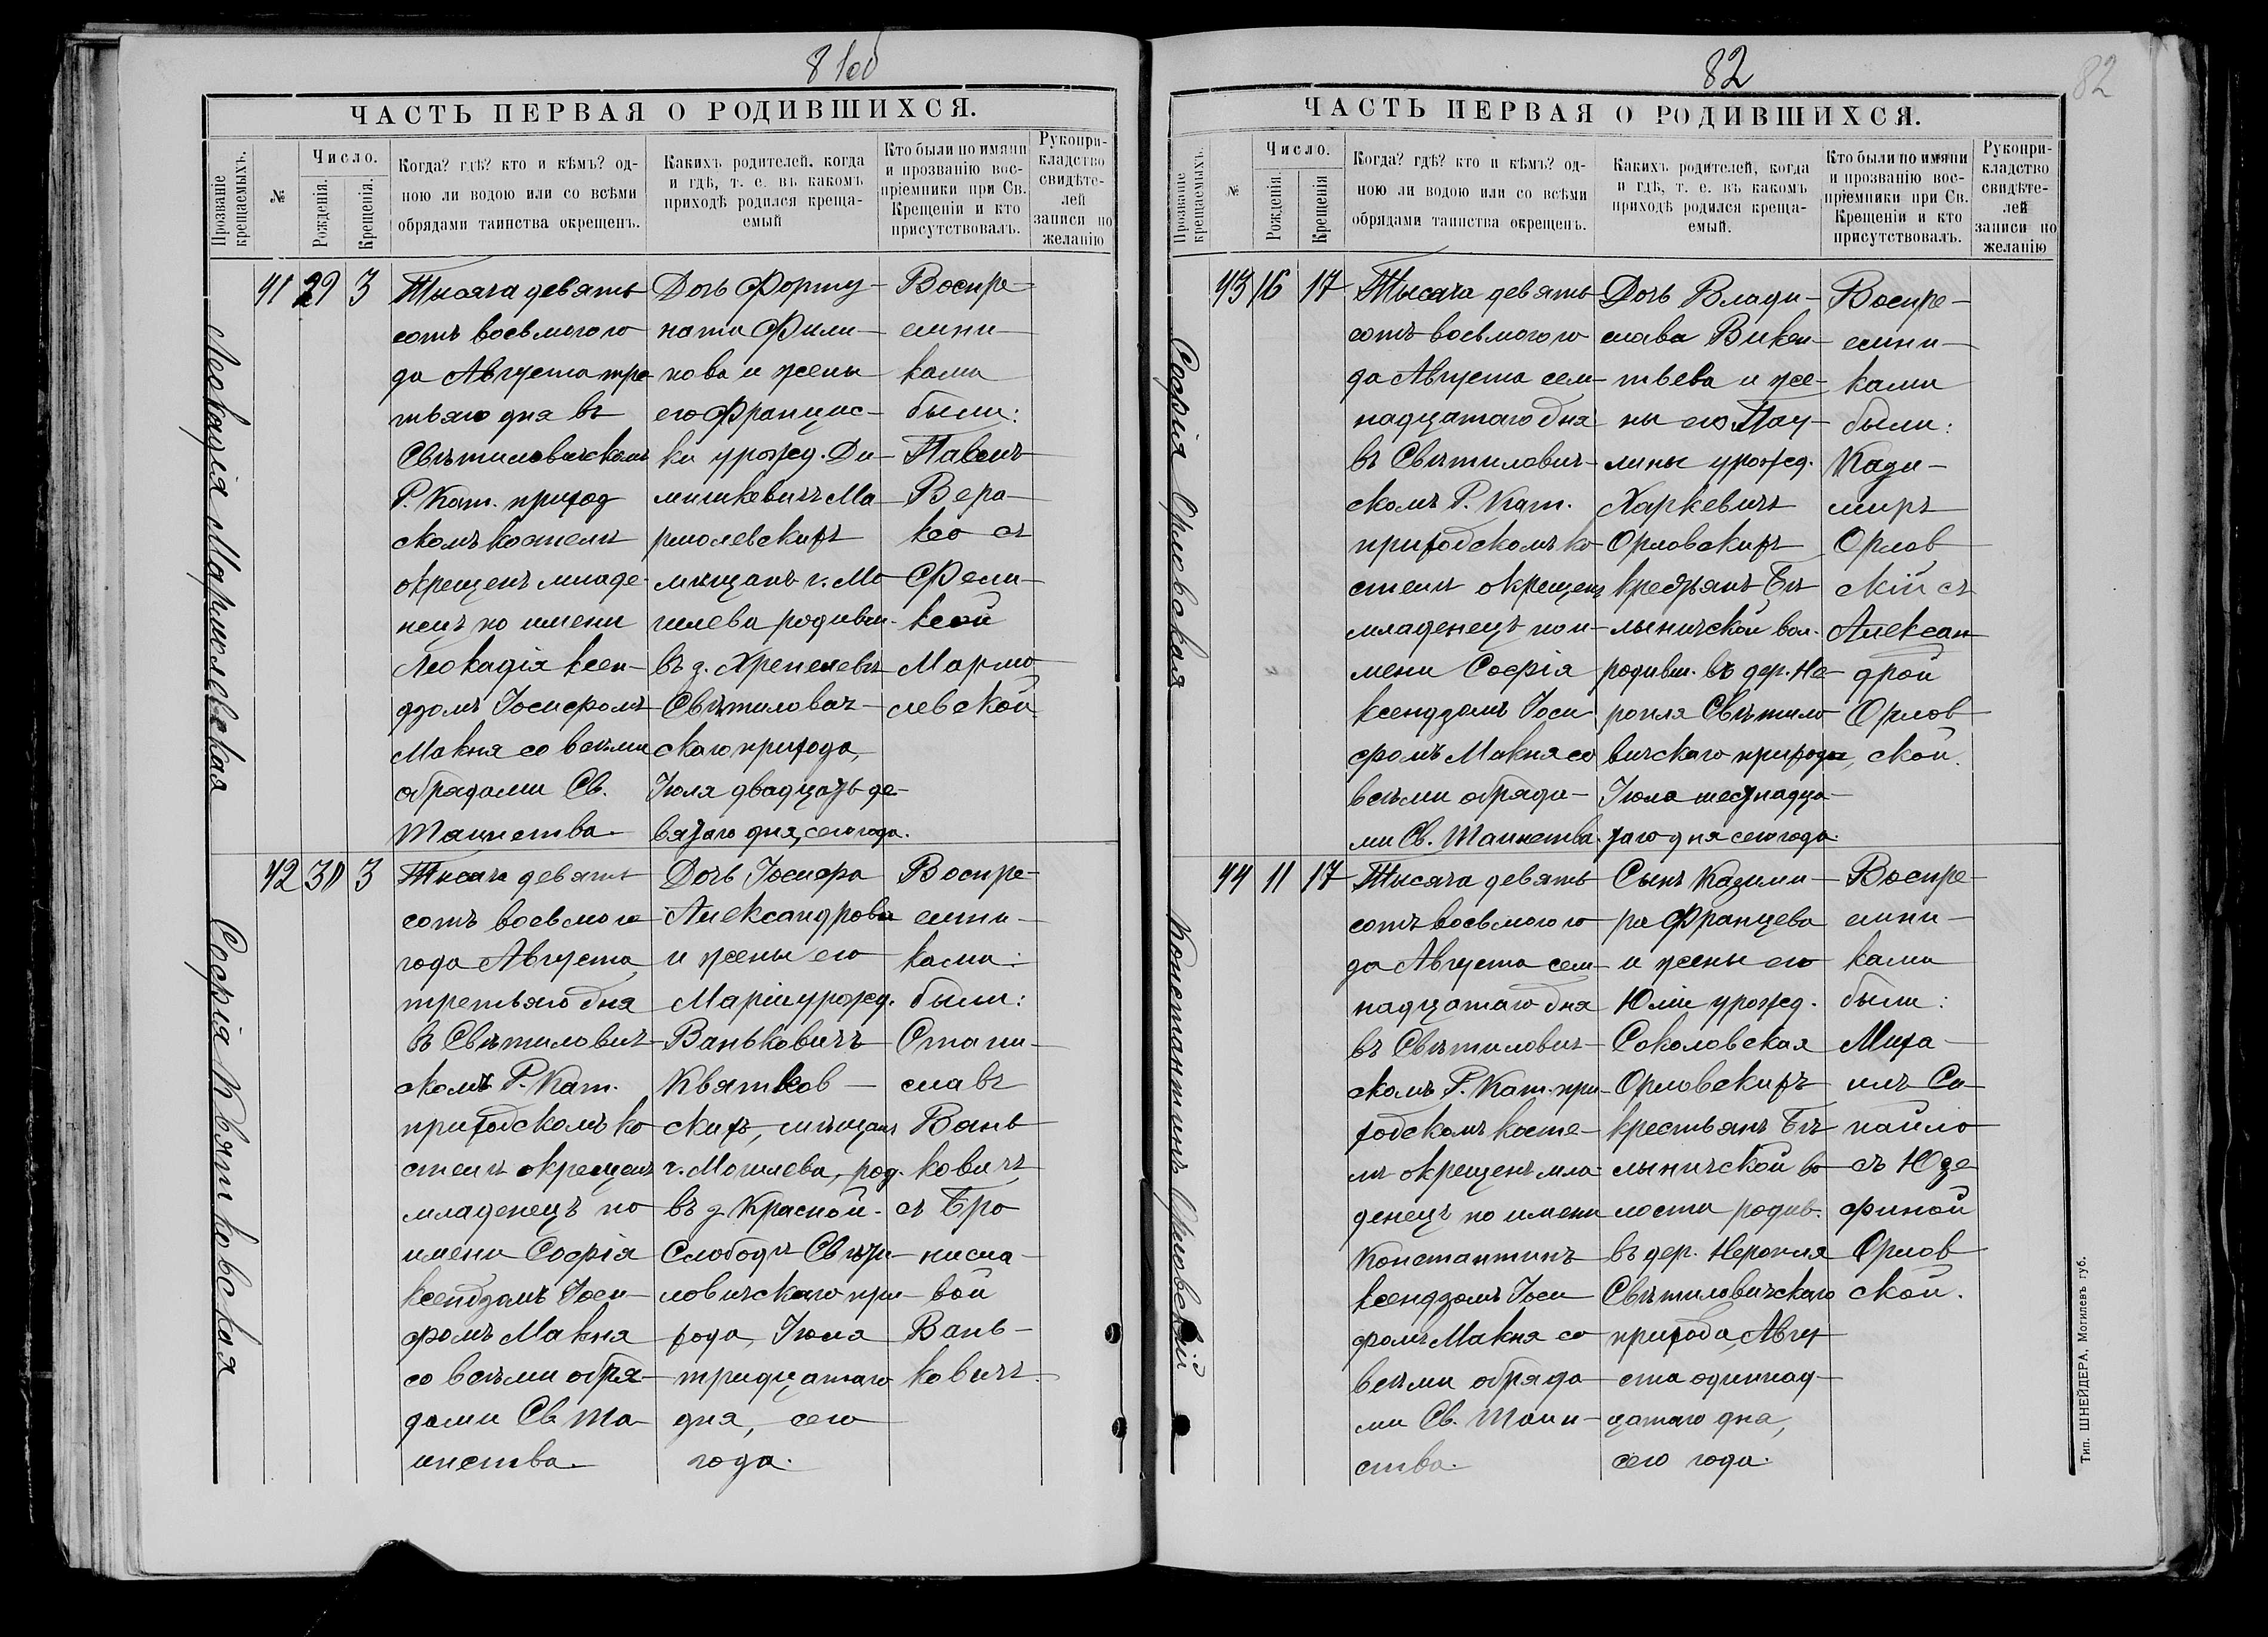 81об
ЧАСТЬ ПЕРВАЯ О РОДИВШИХСЯ.
Прозваніе крещаемыхъ.
№
Число.
Рожденія.
Крещенія.
Когда? гдѣ? кто и кѣмъ? од-
ною ли водою или со всѣми
обрядами таинства окрещенъ.
Какихъ родителей, когда
и гдѣ, т. е. въ какомъ
приходѣ родился креща-
емый
Кто были по имяни
и прозванію вос-
пріемники при Св.
Крещеніи и кто
присутствовалъ.
Рукопри-
кладство
свидѣте-
лей
записи по
желанію
Леокадія Мармолевская
41 29 3
Тысяча девять
сотъ восьмого го
да Августа тре
тьяго дня въ
Свѣтиловическомъ
Р. Кат. приход
скомъ костелѣ
окрещенъ младе-
нецъ по имени
Леокадія ксен-
дзомъ Іосифомъ
Макня со всѣми
обрядами Св.
Таинства.
Дочь Форту-
ната Фили-
пова и жены
его Францис-
ки урожд. Ди-
мишкевичъ Ма
рмолевскихъ
мѣщанъ г. Мо
гилева родивш.
въ д. Хрепелевѣ
Свѣтилович-
скаго прихода,
Іюля двадцать де-
вятаго дня, сего года.
Воспре-
емни-
ками
были:
Павелъ
Вера-
ксо съ
Фели-
ксой
Мармо
левской.
Софія Квятковская
42 30 3
Тысяча девять
сотъ восьмого
года Августа
третьяго дня
въ Свѣтилович-
скомъ Р. Кат.
приходскомъ ко
стелѣ окрещенъ
младенецъ по
имени Софія
ксендзомъ Іоси-
фомъ Макня
со всѣми обря-
дами Св. Та-
инства.
Дочь Іосифа
Александрова
и жены его
Маріи урожд.
Ваньковичъ
Квятков-
скихъ, мѣщанъ
г. Могилева, род.
въ д. Красной-
Слободѣ Свѣти-
ловичскаго при-
хода, Іюля
тридцатаго
дня, сего
года.
Воспре-
емни-
ками:
были:
Стани-
славъ
Вань-
ковичъ
съ Бро
нисла-
вой
Вань-
ковичъ.
82
82
ЧАСТЬ ПЕРВАЯ О РОДИВШИХСЯ.
Прозваніе крещаемыхъ.
№
Число.
Рожденія.
Крещенія
Когда? гдѣ? кто и кѣмъ? од-
ною ли водою или со всѣми
обрядами таинства окрещенъ.
Какихъ родителей, когда
и гдѣ, т. е. въ какомъ
приходѣ родился креща-
емый.
Кто были по имяни
и прозванію вос-
пріемники при Св.
Крещеніи и кто
присутствовалъ.
Рукопри-
кладство
свидѣте-
лей
записи по
желанію
Софія Орловская
43 16 17
Тысяча девять
сотъ восьмого го
да Августа сем-
надцатаго дня
въ Свѣтилович-
скомъ Р. Кат.
приходскомъ ко
стелѣ окрещенъ
младенецъ по и-
мени Софія
ксендзомъ Іоси-
фомъ Макня со
всѣми обряда-
ми Св. Таинства.
Дочь Влади-
слава Викен-
тьева и же-
ны его Пау-
лины урожд.
Харкевичъ
Орловскихъ
крестьянъ Бѣ
лыничской вол.
родивш. въ дер. Не-
ропля Свѣтило
вичскаго прихода,
Іюля шестнадца-
таго дня сего года.
Воспре-
емни-
ками
были:
Кази-
миръ
Орлов
скій съ
Алексан
дрой
Орлов
ской.
Константинъ Орловскій
44 11 17
Тысяча девять
сотъ восьмого го
да Августа сем-
надцатаго дня
въ Свѣтилович-
скомъ Р. Кат. при-
ходскомъ косте-
лѣ окрещенъ мла-
денецъ по имени
Константинъ
ксендзомъ Іоси
фомъ Макня со
всѣми обряда-
ми Св. Таин-
ства.
Сынъ Казими-
ра Францева
и жены его
Юліи урожд.
Соколовская
Орловскихъ
крестьянъ Бѣ-
лыничской во
лости родив.
въ дер. Неропля
Свѣтиловичскаго
прихода, Авгу-
ста одиннад-
цатаго дня,
сего года.
Воспре-
емни-
ками
были:
Миха-
илъ Са-
пайло
съ Юзе
финой
Орлов
ской.
Тип. ШНЕЙДЕРА, Могилевъ губ.